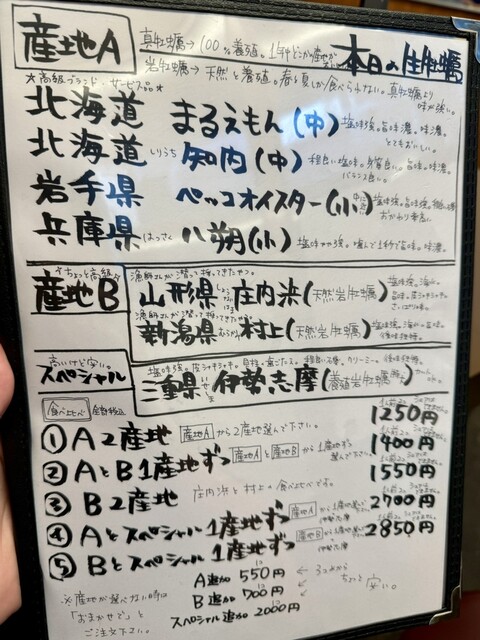 本日の生牡蠣
産地A
真牡蠣→100%養殖。
岩牡蠣→天然と養殖。春と夏しか食べられない。真牡蠣より味が強い。
★高級ブランド・サービス品★
北海道 まるえもん(中) 塩味強。旨味濃。味濃。とてもおいしい。
北海道 しりうち 知内(中) 程良い塩味。身質良い。旨味。味濃。バランス良い。
岩手県 ペッコオイスター(小) 塩味強。旨味強。
兵庫県 はっさく 八朔(小) 塩味やや強。旨味。味濃。
産地B
ちょっと高級
漁師さんが潜って採ってきたやつ。
山形県 庄内浜(天然岩牡蠣)
漁師さんが潜って採ってきたやつ
新潟県 村上(天然岩牡蠣)
スペシャル
高いけど安い。
三重県 いせしま 伊勢志摩(養殖岩牡蠣)
食べ比べ 全部税込
① A2産地 産地Aから2産地選んで下さい。 1250円
② AとB1産地ずつ 産地Aと産地Bから1産地ずつ選んで下さい。 1400円
③ B2産地 庄内浜と村上の食べ比べです。 1550円
④ Aとスペシャル1産地ずつ 産地Aから1産地 伊勢志摩 2700円
⑤ Bとスペシャル1産地ずつ 産地Bから1産地 伊勢志摩 2850円
※産地が選べない時は「おまかせで」とご注文下さい。
A追加 550円
B追加 700円
スペシャル追加 2000円
← 3コめから
← ちょっと安い。